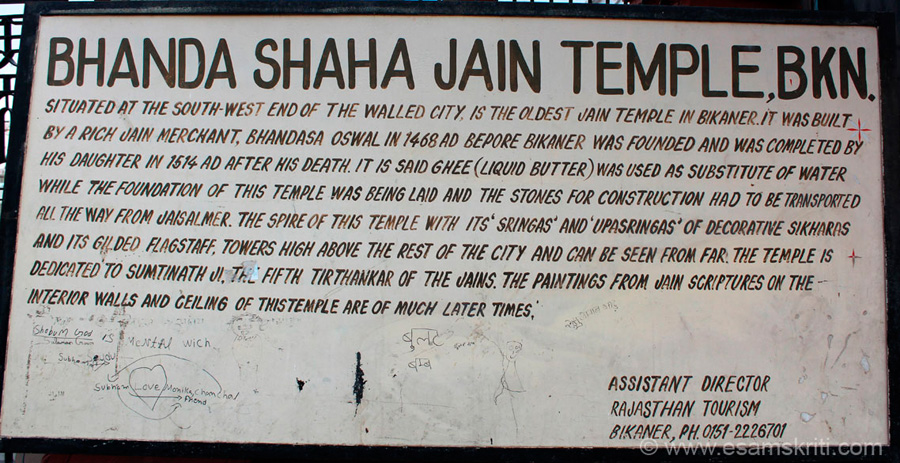 BHANDA SHAHA JAIN TEMPLE, BKN.
SITUATED AT THE SOUTH-WEST END OF THE WALLED CITY, IS THE OLDEST JAIN TEMPLE IN BIKANER. IT WAS BUILT
BY A RICH JAIN MERCHANT, BHANDASA OSWAL IN 1468 AD BEPORE BIKANER WAS FOUNDED AND WAS COMPLETED BY
HIS DAUGHTER IN 1514 AD AFTER HIS DEATH. IT IS SAID GHEE (LIQUID BUTTER) WAS USED AS SUBSTITUTE OF WATER
WHILE THE FOUNDATION OF THIS TEMPLE WAS BEING LAID AND THE STONES FOR CONSTRUCTION HAD TO BE TRANSPORTED
ALL THE WAY FROM JAISALMER. THE SPIRE OF THIS TEMPLE WITH ITS 'SRINGAS' AND 'UPASRINGAS' OF DECORATIVE SIKHARAS
AND ITS GILDED FLAGSTAFF, TOWERS HIGH ABOVE THE REST OF THE CITY AND CAN BE SEEN FROM FAR. THE TEMPLE IS
DEDICATED TO SUMTINATH JI, THE FIFTH TIRTHANKAR OF THE JAINS. THE PAINTINGS FROM JAIN SCRIPTURES ON THE -
INTERIOR WALLS AND CEILING OF THISTEMPLE ARE OF MUCH LATER TIMES.'
Shubum God is Mental wich
Subham
Subham Love Monika
Friend
बुलट
बम
ASSISTANT DIRECTOR
RAJASTHAN TOURISM
BIKANER, PH. 0151-2226701
© www.esamskriti.com